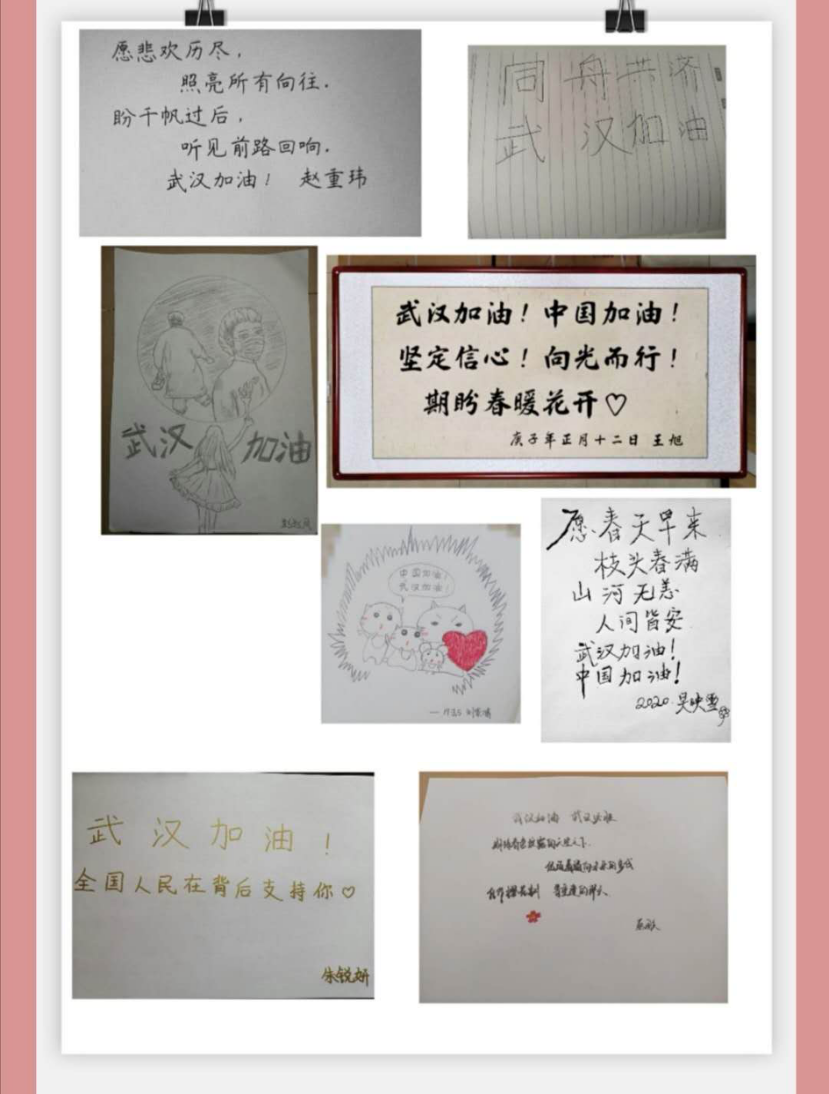 愿悲欢历尽，
照亮所有向往.
盼千帆过后，
听见前路回响.
武汉加油！ 赵重玮
同舟共济
武汉加油
武汉 加油
武汉加油！中国加油！
坚定信心！向光而行！
期盼春暖花开♡
庚子年正月十二日 王旭
中国加油！
武汉加油！
愿春天早来
枝头春满
山河无恙
人间皆安
武汉加油！
中国加油！
2020.吴映雪
武汉加油！
全国人民在背后支持你♡
朱锐妍
武汉加油